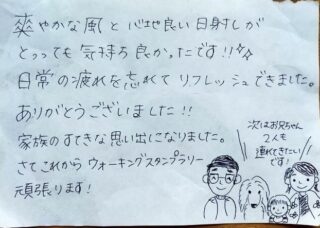 爽やかな風と心地良い日射しが
とっっても気持ち良かったです!!☆☆
日常の疲れを忘れてリフレッシュできました。
ありがとうございました!!
家族のすてきな思い出になりました。
さてこれからウォーキングスタンプラリー
頑張ります!
次はお兄ちゃん
2人も
連れてきたい
です!